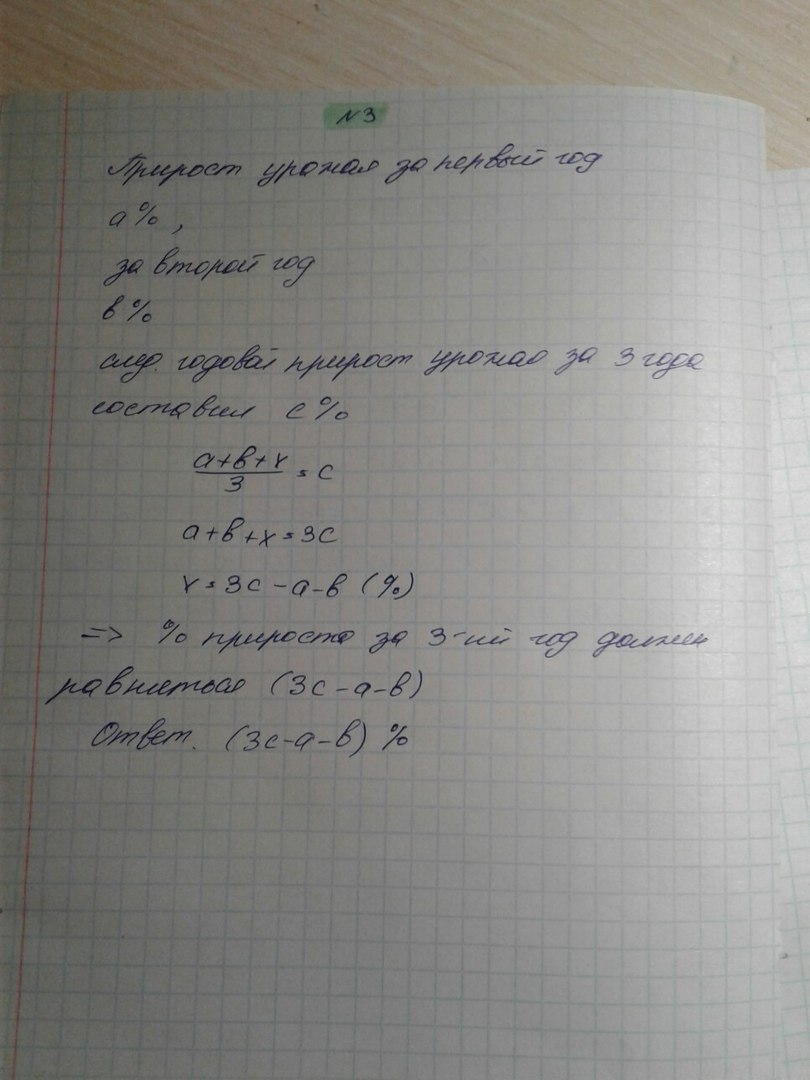 №3
Прирост урожая за первый год
а%,
за второй год
в%
след. годовой прирост урожая за 3 года
составил с%
(а+в+х)/3 = с
а+в+х=3с
х=3с-а-в (%)
=> % прироста за 3-ий год должен
равняться (3с-а-в)
Ответ. (3с-а-в) %